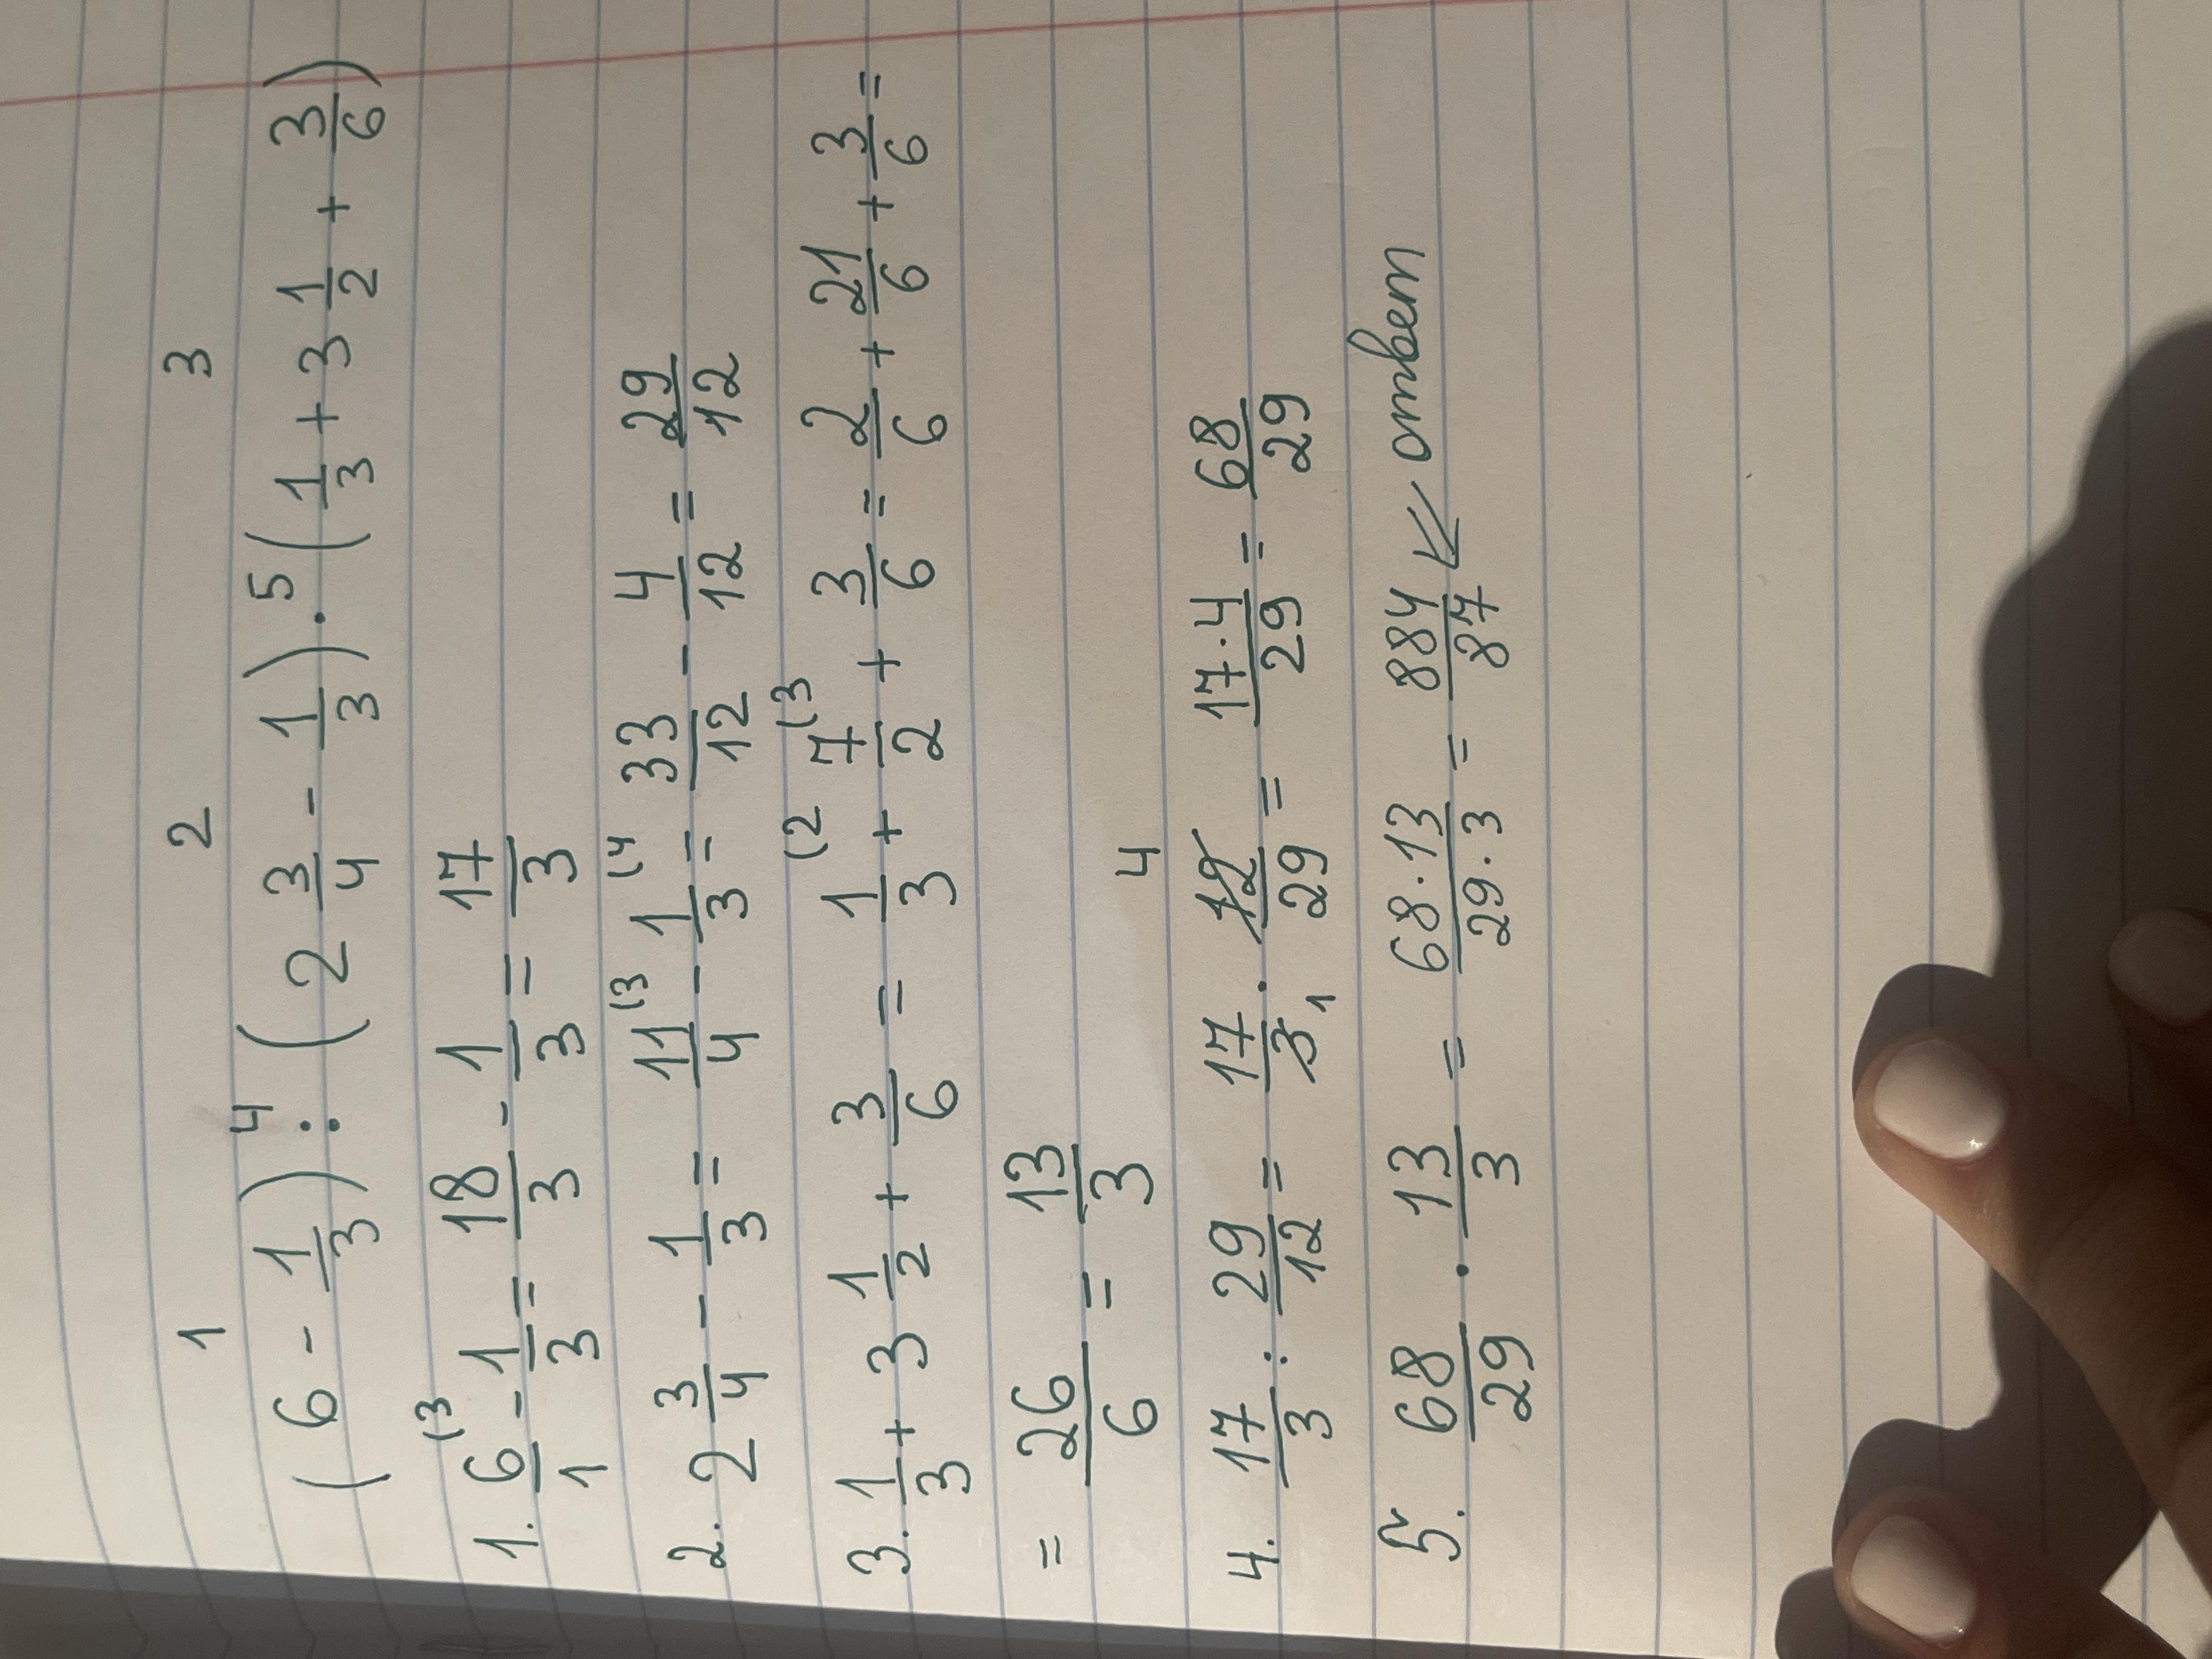 1 2 3
(6 - 1/3) :⁴ (2 3/4 - 1/3) ·⁵ (1/3 + 3 1/2 + 3/6)
1. 6/1 (3 - 1/3 = 18/3 - 1/3 = 17/3
2. 2 3/4 - 1/3 = 11/4 (3 - 1/3 (4 = 33/12 - 4/12 = 29/12
3. 1/3 + 3 1/2 + 3/6 = 1/3 (2 + 7/2 (3 + 3/6 = 2/6 + 21/6 + 3/6 =
= 26/6 = 13/3
4. 17/3 : 29/12 = 17/3 1 · 12 4/29 = 17·4/29 = 68/29
5. 68/29 · 13/3 = 68·13/29·3 = 884/87 ⇐ ответ